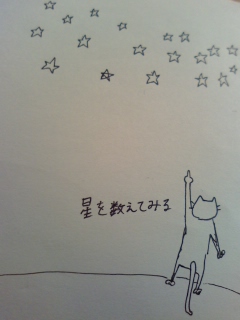 星を数えてみる